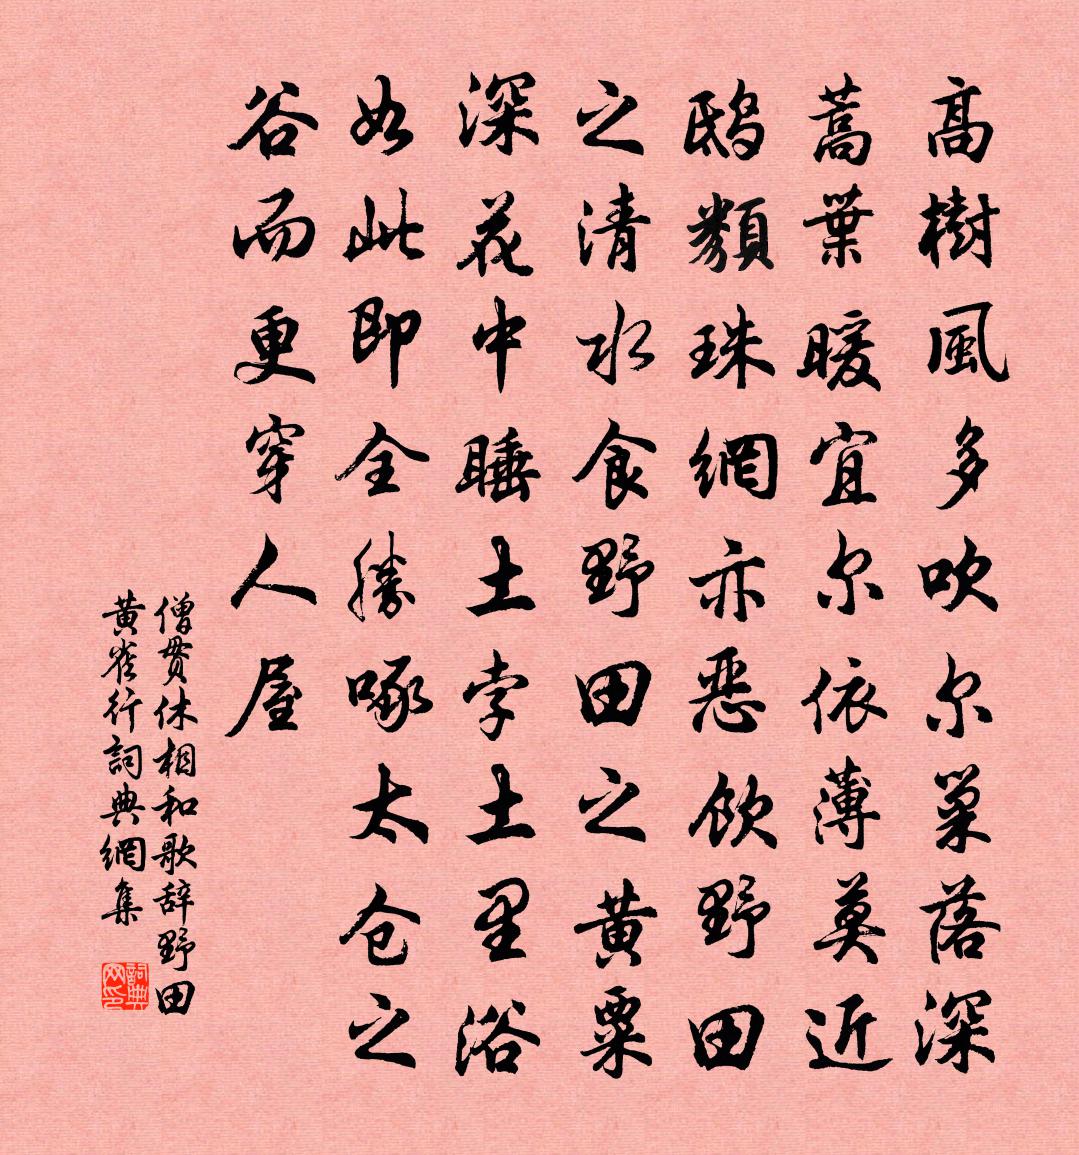 高樹風多吹尔巢落深
蒿葉暖宜尔依薄莫近
鴟類珠網亦惡飲野田
之清水食野田之黃粟
深花中睡土孛土里浴
如此即全勝啄太仓之
谷而更穿人屋
僧貫休相和歌辞野田
黄雀行詞典網集
詞典网印